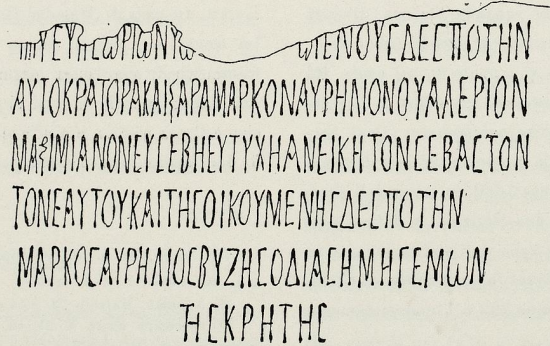 ΕΝΟΥϹΔΕϹΠΟΤΗΝ
ΑΥΤΟΚΡΑΤΟΡΑΚΑΙΞΑΡΑΜΑΡΚΟΝΑΥΡΗΛΙΟΝΟΥΑΛΕΡΙΟΝ
ΜΑΞΙΜΙΑΝΟΝΕΥϹΕΒΗΕΥΤΥΧΗΑΝΕΙΚΗΤΟΝϹΕΒΑϹΤΟΝ
ΤΟΝΕΑΥΤΟΥΚΑΙΤΗϹΟΙΚΟΥΜΕΝΗϹΔΕϹΠΟΤΗΝ
ΜΑΡΚΟϹΑΥΡΗΛΙΟϹΒΥΖΗϹΟΔΙΑϹΗΜΗΓΕΜΩΝ
ΤΗϹΚΡΗΤΗϹ